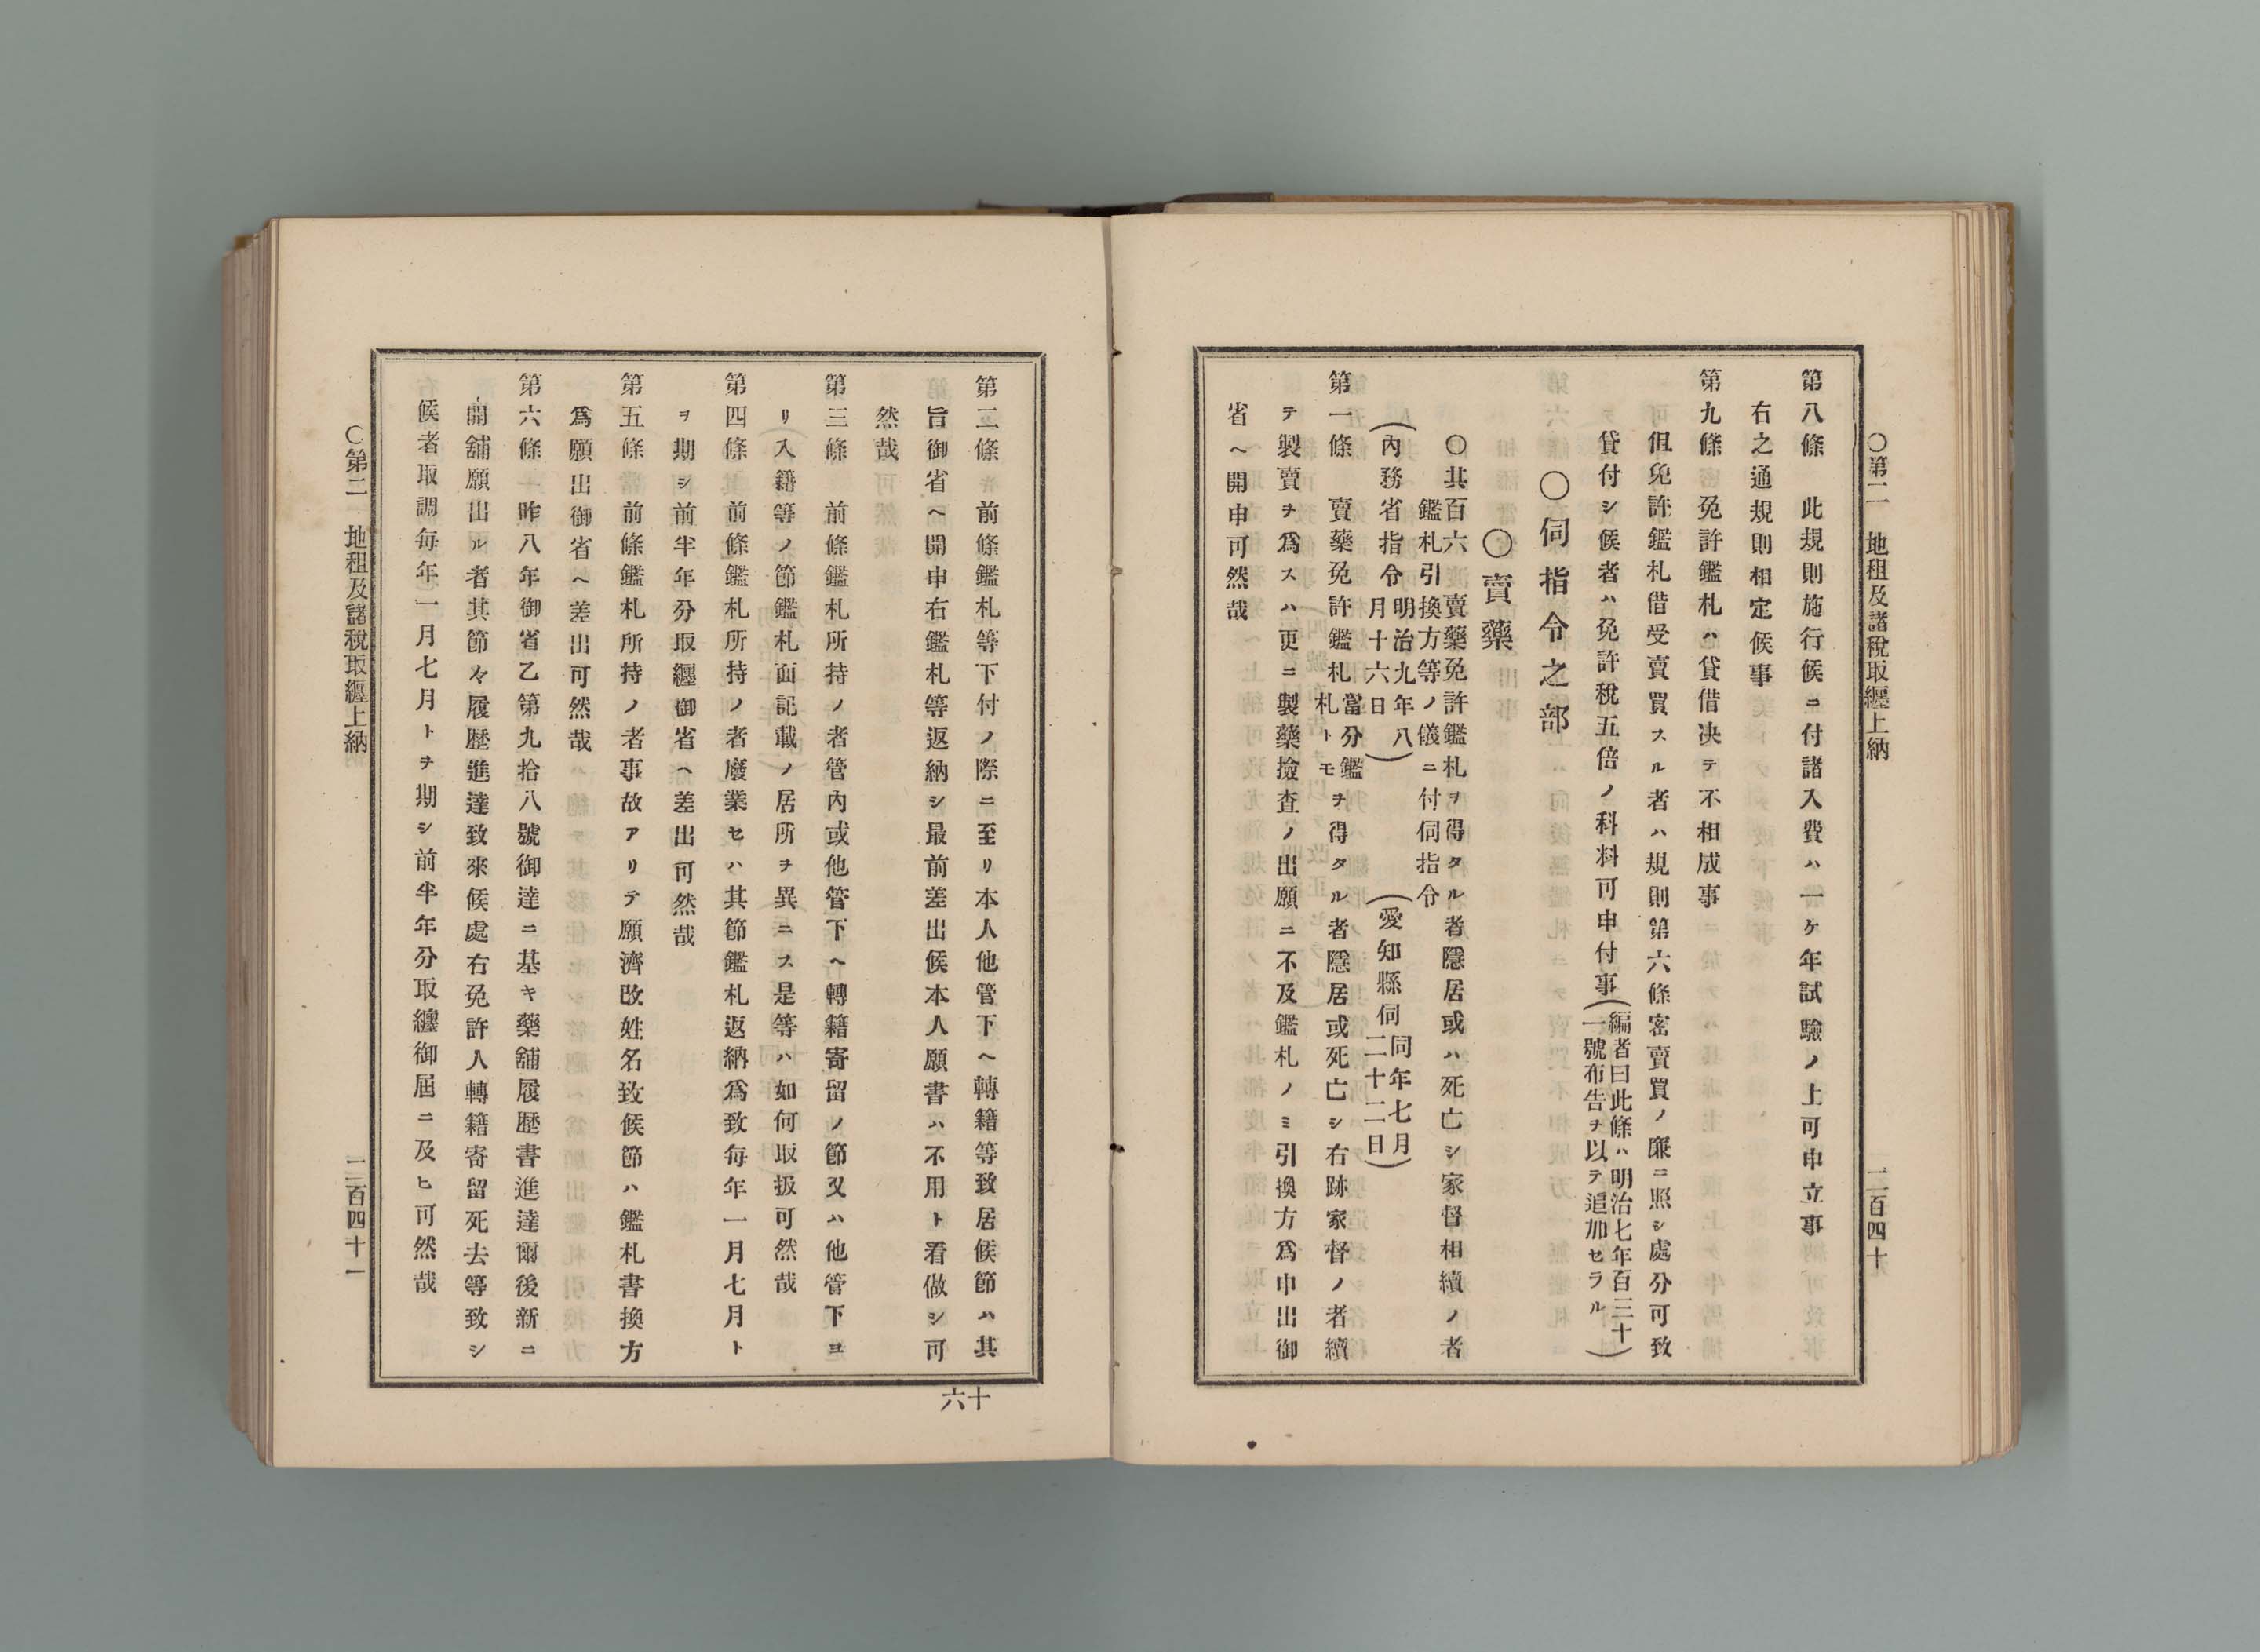 〇第二 地租及諸稅取纒上納 二百四十
第八條 此規則施行候ニ付諸入費ハ一ケ年試驗ノ上可申立事
右之通規則相定候事
第九條 免許鑑札ハ貸借决テ不相成事
但免許鑑札借受賣買スル者ハ規則第六條密賣買ノ廉ニ照シ處分可致
貸付シ候者ハ免許稅五倍ノ科料可申付事(編者曰此條ハ明治七年百三十
一號布告ヲ以テ追加セラル)
〇伺指令之部
〇賣藥
〇其百六 賣藥免許鑑札ヲ得タル者隱居或ハ死亡シ家督相續ノ者
鑑札引換方等ノ儀ニ付伺指令
(愛知縣伺 同年七月二十二日)
(內務省指令 明治九年八月十六日)
第一條 賣藥免許鑑札 當分鑑札トモ ヲ得タル者隱居或死亡シ右跡家督ノ者續
テ製賣ヲ爲スハ更ニ製藥撿査ノ出願ニ不及鑑札ノミ引換方爲申出御
省ヘ開申可然哉
第二條 前條鑑札等下付ノ際ニ至リ本人他管下ヘ轉籍等致居候節ハ其
旨御省ヘ開申右鑑札等返納シ最前差出候本人願書ハ不用ト看做シ可
然哉
第三條 前條鑑札所持ノ者管內或他管下ヘ轉籍寄留ノ節又ハ他管下ヨ
リ入籍等ノ節鑑札面記載ノ居所ヲ異ニス是等ハ如何取扱可然哉
第四條 前條鑑札所持ノ者廢業セハ其節鑑札返納爲致每年一月七月ト
ヲ期シ前半年分取纒御省ヘ差出可然哉
第五條 前條鑑札所持ノ者事故アリテ願濟改姓名致候節ハ鑑札書換方
爲願出御省ヘ差出可然哉
第六條 昨八年御省乙第九拾八號御達ニ基キ藥舖履歷書進達爾後新ニ
開舖願出ル者其節々履歷進達致來候處右免許人轉籍寄留死去等致シ
候者取調每年一月七月トヲ期シ前半年分取纒御屆ニ及ヒ可然哉
〇第二 地租及諸稅取纒上納 二百四十一
十六